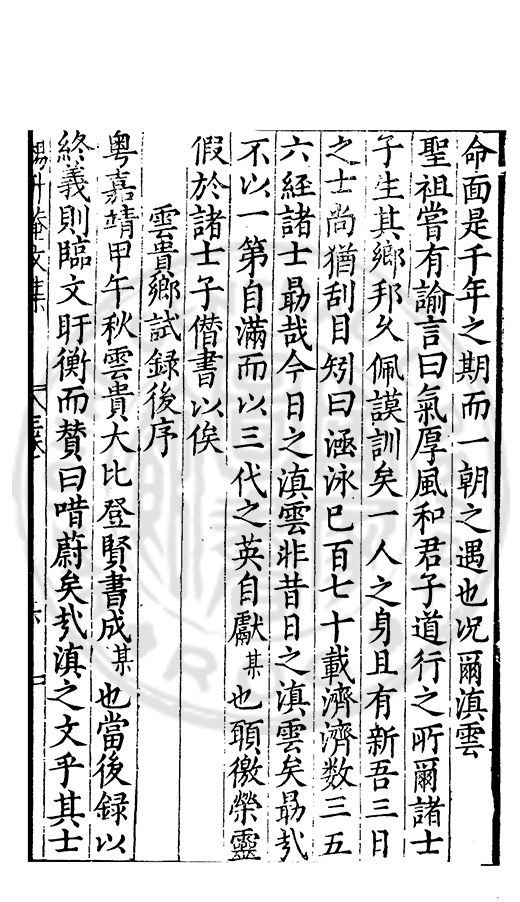 命面是千年之期而一朝之遇也况爾滇雲
聖祖嘗有諭言曰氣厚風和君子道行之所爾諸士
子生其鄉邦久佩謨訓矣一人之身且有新吾三日
之士尚猶刮目矧曰涵泳已百七十載濟濟数三五
六經諸士勗哉今日之滇雲非昔日之滇雲矣勗哉
不以一第自滿而以三代之英自獻某也頤徼榮靈
假於諸士子僭書以俟
雲貴鄉試録後序
粤嘉靖甲午秋雲貴大比登賢書成某也當後録以
終義則臨文盱衡而賛曰唶蔚矣哉滇之文乎其士
升菴文集